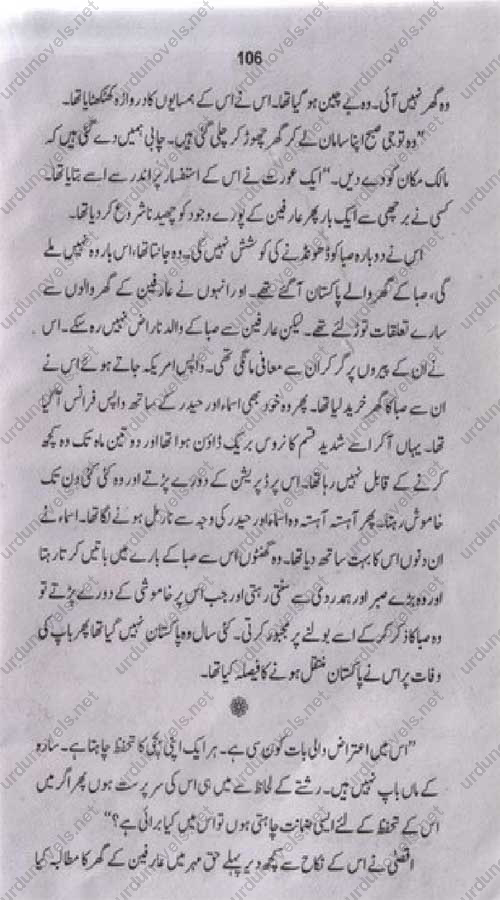 106
وہ گھر نہیں آئی۔ وہ بے چین ہو گیا تھا۔ اس نے اس کے ہمسایوں کا دروازہ کھٹکھٹایا تھا۔
”وہ تو جی صبح اپنا سامان لے کر گھر چھوڑ کر چلی گئی ہیں۔ چابی ہمیں دے گئی ہیں کہ
مالک مکان کو دے دیں۔“ ایک عورت نے اس کے استفسار پر اندر سے اسے بتایا تھا۔
کسی نے برچھی سے ایک بار پھر عارفین کے پورے وجود کو چھیدنا شروع کر دیا تھا۔
اس نے دوبارہ صبا کو ڈھونڈنے کی کوشش نہیں کی۔ وہ جانتا تھا، اس بار وہ نہیں ملے
گی، صبا کے گھر والے پاکستان آ گئے تھے۔ اور انہوں نے عارفین کے گھر والوں سے
سارے تعلقات توڑ لئے تھے۔ لیکن عارفین سے صبا کے والد ناراض نہیں رہ سکے۔ اس
نے ان کے پیروں پر گر کر ان سے معافی مانگی تھی۔ واپس امریکہ جاتے ہوئے اس نے
ان سے صبا کا گھر خرید لیا تھا۔ پھر وہ خود بھی اسماء اور حیدر کے ساتھ واپس فرانس آ گیا
تھا۔ یہاں آ کر اسے شدید قسم کا نروس بریک ڈاؤن ہوا تھا اور دو تین ماہ تک وہ کچھ
کرنے کے قابل نہیں رہا تھا۔ اس پر ڈپریشن کے دورے پڑتے اور وہ کئی کئی دن تک
خاموش رہتا۔ پھر آہستہ آہستہ وہ اسماء اور حیدر کی وجہ سے نارمل ہونے لگا تھا۔ اسماء نے
ان دنوں اس کا بہت ساتھ دیا تھا۔ وہ گھنٹوں اس سے صبا کے بارے میں باتیں کرتا رہتا
اور وہ بڑے صبر اور ہمدردی سے سنتی رہتی اور جب اس پر خاموشی کے دورے پڑتے تو
وہ صبا کا ذکر کر کے اسے بولنے پر مجبور کرتی۔ کئی سال وہ پاکستان نہیں گیا تھا پھر باپ کی
وفات پر اس نے پاکستان منتقل ہونے کا فیصلہ کیا تھا۔
”اس میں اعتراض والی بات کون سی ہے۔ ہر ایک اپنی بچی کا تحفظ چاہتا ہے۔ سارہ
کے ماں باپ نہیں ہیں۔ رشتے کے لحاظ سے میں ہی اس کی سرپرست ہوں پھر اگر میں
اس کے تحفظ کے لئے ایسی ضمانت چاہتی ہوں تو اس میں کیا برائی ہے؟“
اقصٰی نے اس کے نکاح سے کچھ دیر پہلے حق مہر میں عارفین کے گھر کا مطالبہ کیا
urdunovels.net